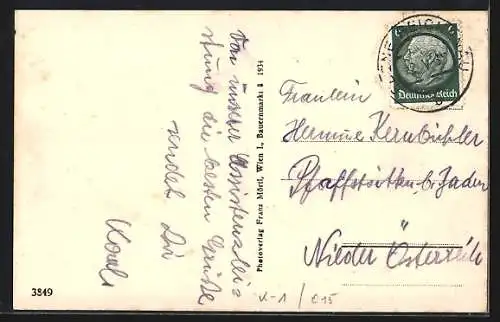 Von unserer Assistenzlei-
stung die besten Grüße
sendet Dir
Karl
Photoverlag Franz Mörtl, Wien I., Bauernmarkt 1934
3849
6 6
Deutsches Reich
Fräulein
Hermine Kernbichler
Pfaffstätten b. Baden
Nieder Österreich
K-1 / 015